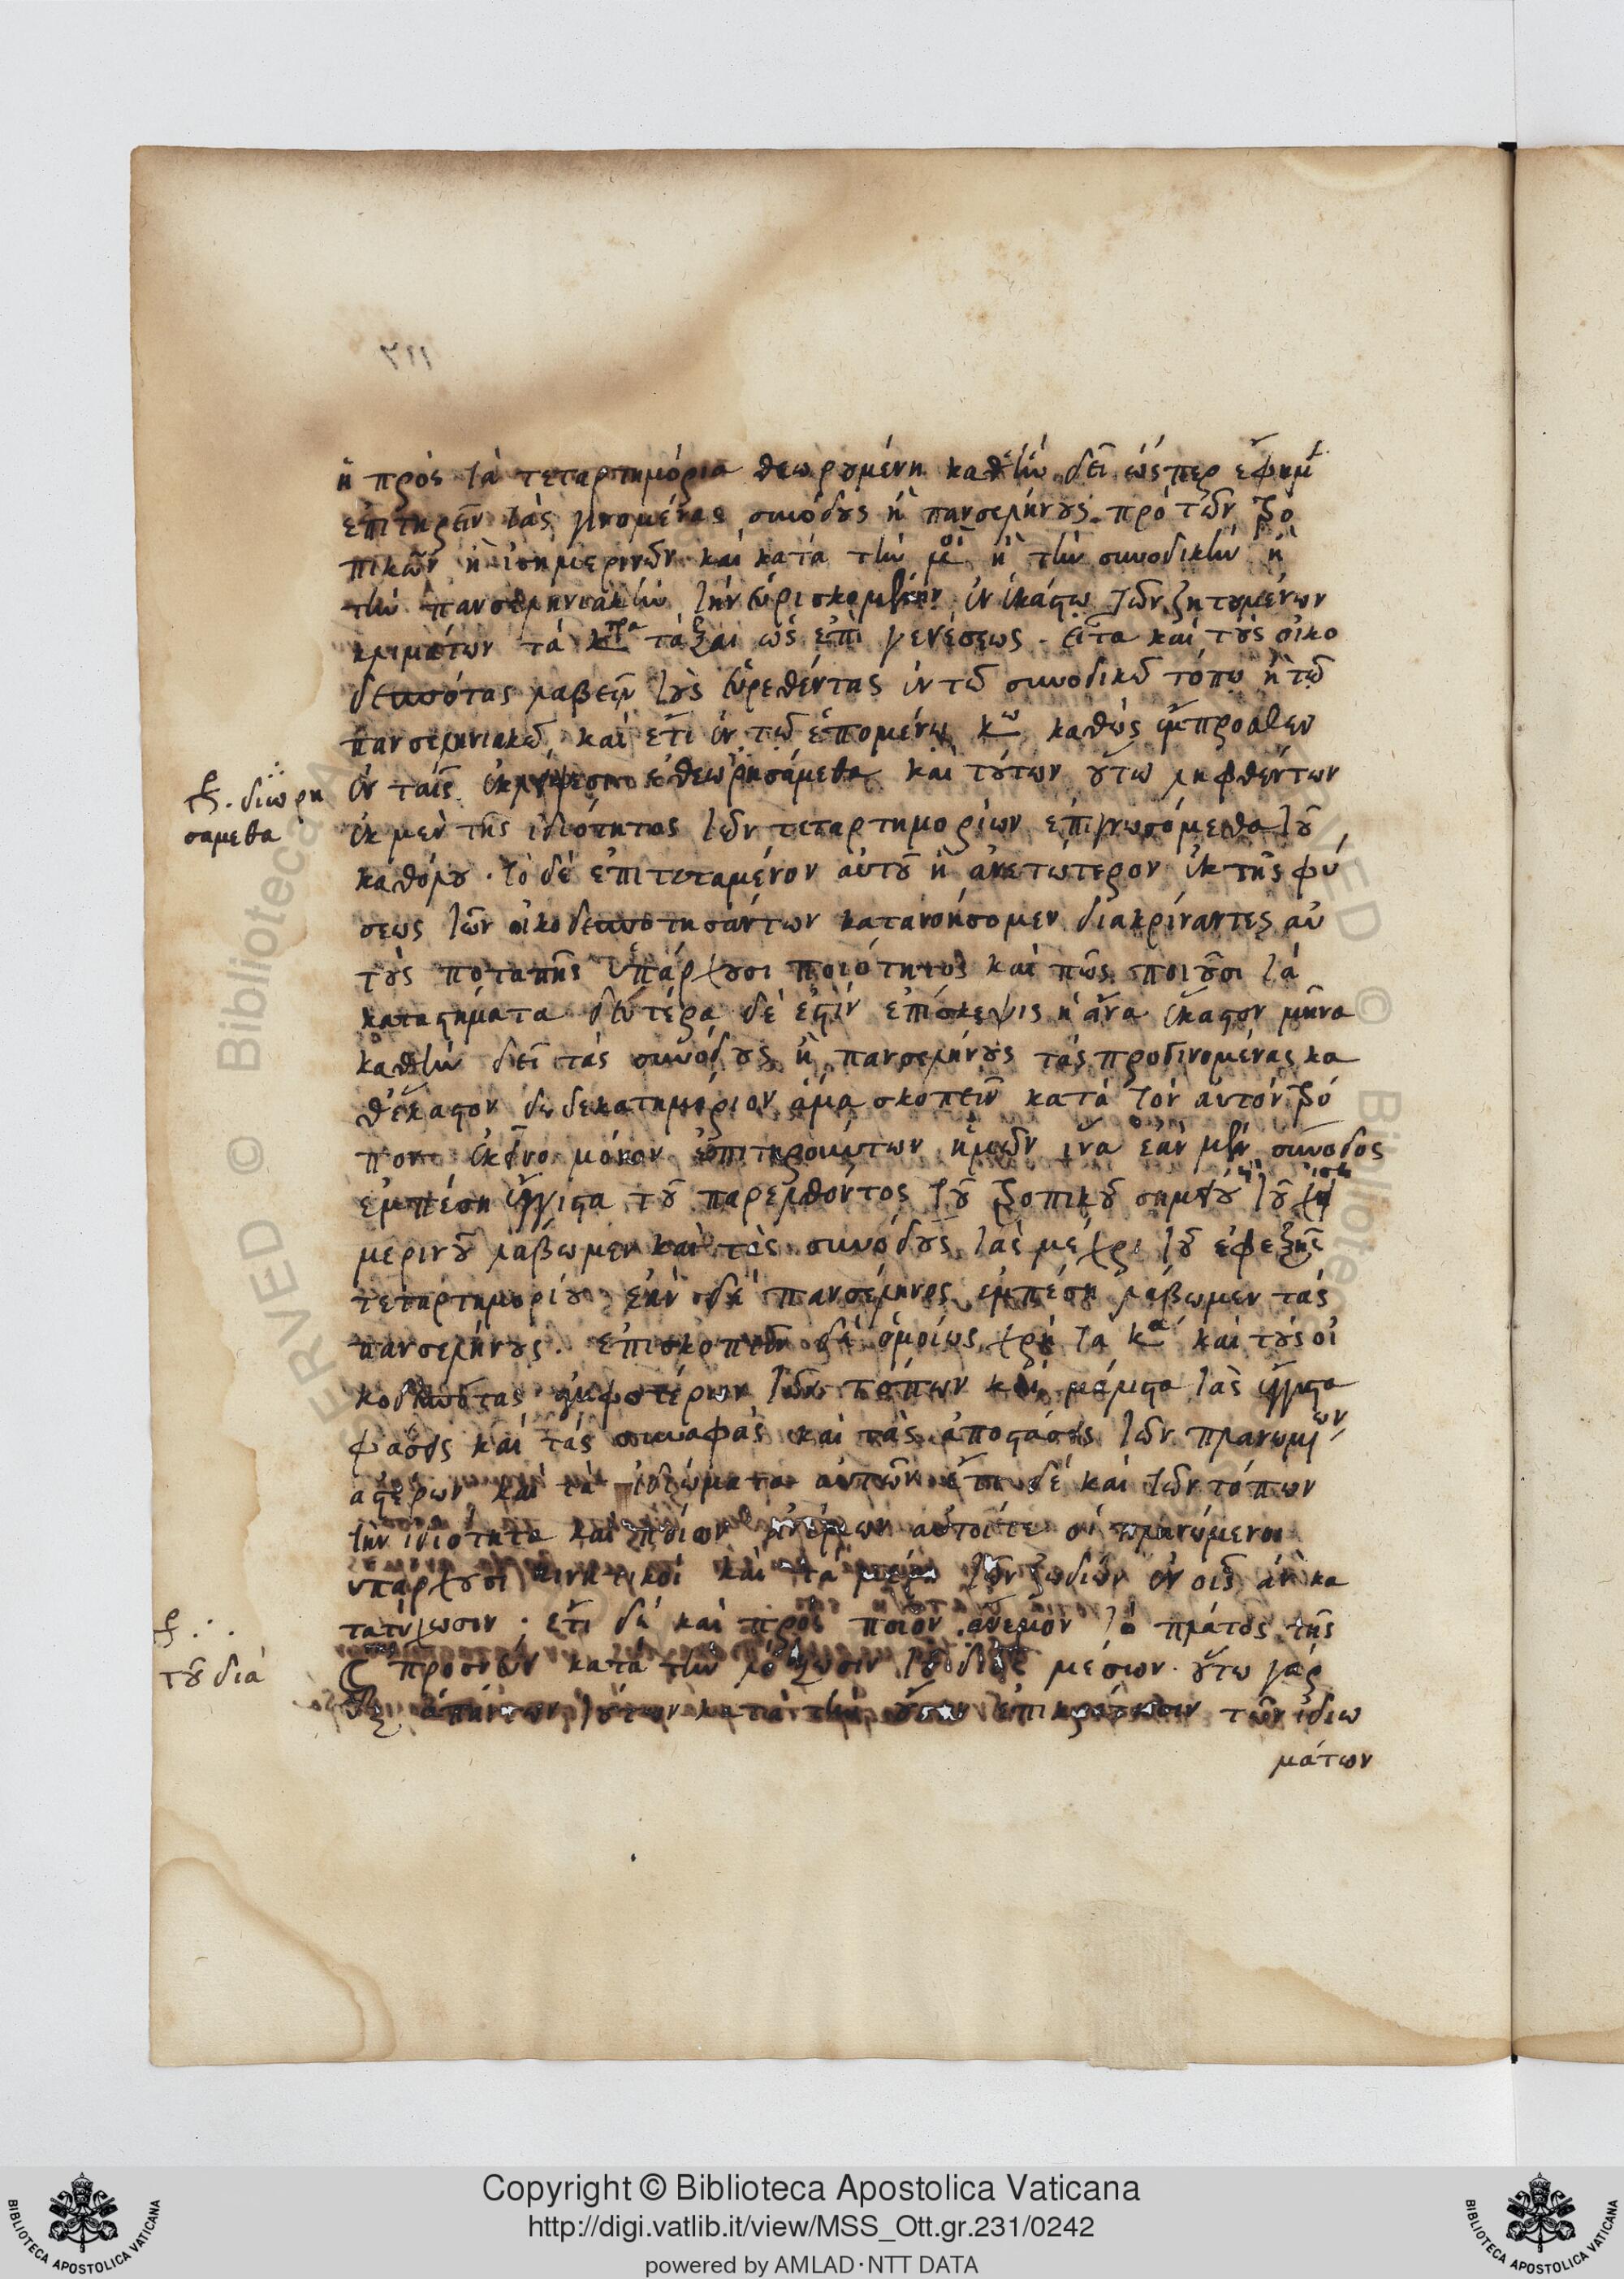 ἡ πρὸς τὰ τεταρτημόρια θεωρουμένη καθ' ἣν δεῖ ὥσπερ ἔφημ
ἐπιτηρεῖν τὰς γινομένας συνόδους ἢ πανσελήνους πρὸ τῶν τρο
πικῶν ἢ ἰσημερινῶν καὶ κατὰ τὴν μοῖ ἢ τὴν συνοδικὴν ἢ
τὴν πανσεληνιακὴν τὴν εὑρισκομένην ἐν ἑκάστῳ τῶν ζητουμένων
κλιμάτων τὰ κτρα τάξαι ὡς ἐπὶ γενέσεως. εἶτα καὶ τοὺς οἰκο
δεσπότας λαβεῖν τοὺς εὑρεθέντας ἐν τῷ συνοδικῷ τόπῳ ἢ τῷ
πανσεληνιακῷ, καὶ ἔτι ἐν τῷ ἑπομένῳ κω καθὼς ἔμπροσθεν
ἐν ταῖς ἐκλείψεσιν ἐθεωρησάμεθα καὶ τούτων οὕτω ληφθέντων
γρ. διωρη
σαμεθα
ἐκ μὲν τῆς ἰδιότητος τῶν τεταρτημορίων ἐπιγνωσόμεθα τοῦ
καθόλου. τὸ δὲ ἐπιτεταμένον αὐτοῦ ἢ ἀνετώτερον ἐκ τῆς φύ
σεως τῶν οἰκοδεσποτησάντων κατανοήσομεν διακρίναντες αὐ
τοὺς ποταπῆς ὑπάρχουσι ποιότητος καὶ πῶς ποιοῦσι τὰ
καταστήματα δευτέρα δέ ἐστιν ἐπίσκεψις ἡ ἀνὰ ἕκαστον μῆνα
καθ' ἣν δεῖ τὰς συνόδους ἢ πανσελήνους τὰς προγινομένας κα
θ' ἕκαστον δωδεκατημόριον ἅμα σκοπεῖν κατὰ τὸν αὐτὸν τρό
πον ἐκεῖνο μόνον ἐπιτηρούντων ἡμῶν ἵνα ἐὰν μὲν σύνοδος
ἐμπέσῃ ἔγγιστα τοῦ παρελθόντος τοῦ τροπικοῦ σημείου ἢ τοῦ ἰση
μερινοῦ λάβωμεν καὶ τὰς συνόδους τὰς μέχρι τοῦ ἐφεξῆς
τεταρτημορίου, ἐὰν δὲ πανσέληνος ἐμπέσῃ λάβωμεν τὰς
πανσελήνους. ἐπισκοπεῖν δὲ ὁμοίως χρὴ τὰ κα καὶ τοὺς οἰ
κοδεσπότας ἀμφοτέρων τῶν τόπων καὶ μάλιστα τὰς ἔγγιστα
φάσεις καὶ τὰς συναφὰς καὶ τὰς ἀποστάσεις τῶν πλανωμένων
ἀστέρων καὶ τὰ ἰδιώματα αὐτῶν ἔτι δὲ καὶ τῶν τόπων
τὴν ἰδιότητα καὶ ποίων ἀνέμων αὐτοί τε οἱ πλανώμενοι
ὑπάρχουσι κινητικοὶ καὶ τὰ μέρη τῶν ζωδίων ἐν οἷς ἂν κα
τατύχωσιν. ἔτι δὲ καὶ πρὸς ποῖον ἄνεμον τὸ πλάτος τῆς
γρ.
τοῦ διὰ
☾ προσνεύει κατὰ τὴν λόξωσιν τοῦ διὰ μέσων. οὕτω γὰρ
ἐξ ἁπάντων τούτων κατὰ τὴν οὖσαν ἐπικράτησιν τῶν ἰδιω
μάτων
Copyright © Biblioteca Apostolica Vaticana
http://digi.vatlib.it/view/MSS_Ott.gr.231/0242
powered by AMLAD·NTT DATA